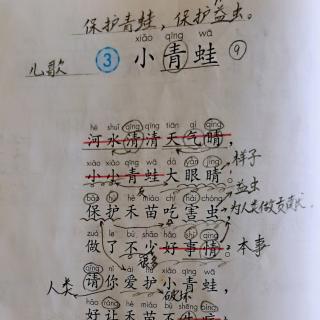 保护青蛙，保护益虫。
xiǎo qīng wā
儿歌 ③ 小青蛙 ⑨
hé shuǐ qīng qīng tiān qì qíng
河水清清天气晴，
xiǎo xiǎo qīng wā dà yǎn jīng
小小青蛙大眼睛。 样子
益虫
bǎo hù hé miáo chī hài chóng
保护禾苗吃害虫， 为人类做贡献
zuò le bù shǎo hǎo shì qíng
做了不少好事情。 本事
很多
qǐng nǐ ài hù xiǎo qīng wā
请你爱护小青蛙，
人类 破坏
hǎo ràng hé miáo bù shēng bìng
好让禾苗不生病